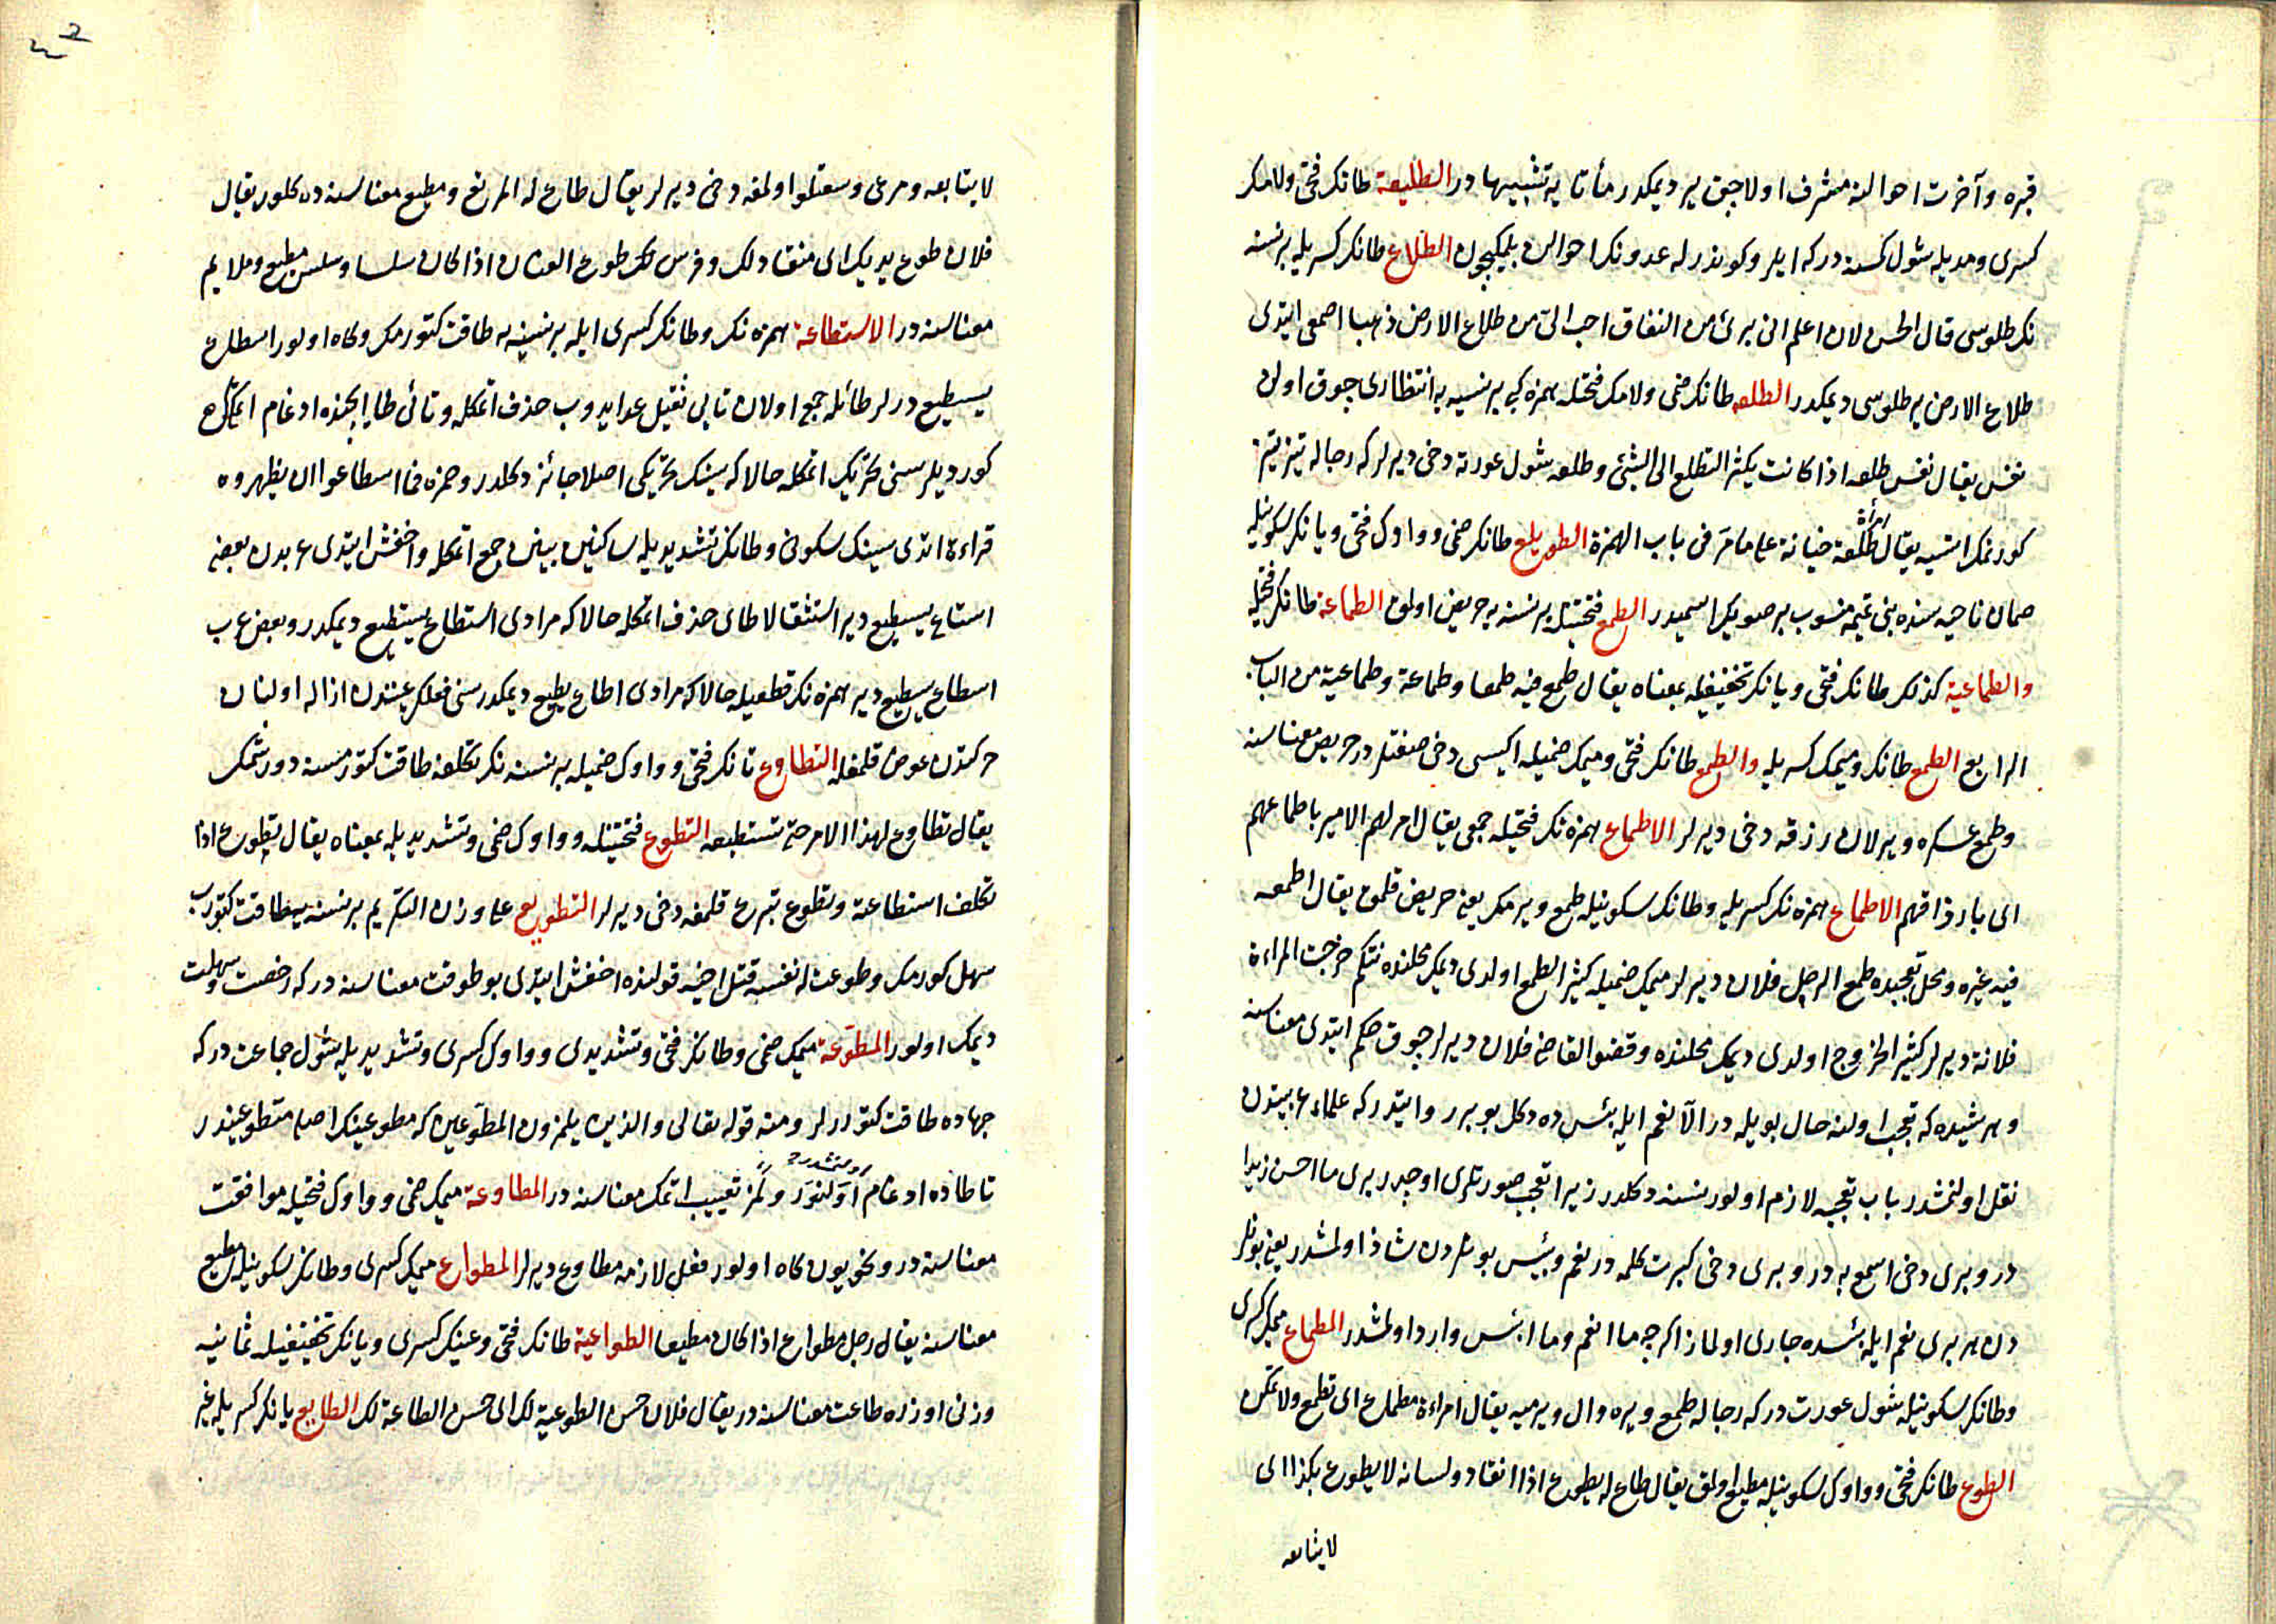 قبره وآخرت احوالنه مشرف اولاجق ير ديمكدر مأتا يه تشبيها در الطليعة طانك فتحى ولامك
كسرى ومديله شول كسنه در كه ايلرو كوندرله عدونك احوالن بلمكيچون الطلاع طانك كسريله بر نسنه
نك طلوسى قال الحسن لان اعلم انى برئ من النفاق احب الىّ من طلاع الارض ذهبا اصمعى ايتدى
طلاع الارض ير طلوسى ديمكدر الطلعه طانك ضمى ولامك فتحله همزه كبى بر نسيه به انتظارى چوق اولن
نفس يقال نفس طلعه اذا كانت يكثر التطلع الى الشئ وطلعه شول عورته دخى ديرلر كه رجاله تيز تيز
كورنمك استيه يقال طلعة خبانة على ما مرّ فى باب الهمزة الطويلع طانك ضمى وواوك فتحى ويانك سكونيله
صمان ناحيه سنده بنى تميمه منسوب بر صويك اسميدر الطمع فتحتيله بر نسنه يه حريص اولمق الطماعة طانك فتحيله
والطماعية كذلك طانك فتحى ويانك تخفيفيله بمعناه يقال طمع فيه طمعا وطماعة وطماعية من الباب
الرابع الطمع طانك وميمك كسريله والطمع طانك فتحى وميمك ضميله ايكيسى دخى صفتلر در حريص معناسنه
وطمع عسكره ويرلان رزقه دخى ديرلر الاطماع همزه نك فتحيله جمعى يقال امر لهم الامير باطماعهم
اى بارزاقهم الاطماع همزه نك كسريله وطانك سكونيله طمع ويرمك يعنى حريص قلمق يقال اطمعه
فيه غيره ومحل تعجبده طمع الرجل فلان ديرلر ميمك ضميله كثير الطمع اولدى ديمك محلنده نتكم خرجت المراءة
فلانة ديرلر كثير الخروج اولدى ديمك محلنده وقضو القاضى فلان ديرلر چوق حكم ايتدى معناسنه
وهر شيده كه تعجب اولنه حال بويله در الا نعم ايله بئس ده دكل بو برر وايتدر كه علماء عربيتدن
نقل اولنمشدر باب تعجبه لازم اولور نسنه دكلدر زيرا تعجب صورتلرى اوچدر برى ما احسن زيدا
در وبرى دخى اسمع به در وبرى دخى كبرت كلمه در نعم وبئس بونلردن شاذ اولمشدر يعنى بونلر
دن هر برى نعم ايله بئسده جارى اولماز اكرچه ما انعم وما ابئس وارد اولمشدر المطماع ميمك كسرى
وطانك سكونيله شول عورت در كه رجاله طمع ويره وال ويرميه يقال امراءة مطماع اى تطمع ولا تمكن
الطوع طانك فتحى وواوك سكونيله مطيع اولمق يقال طاع له يطوع اذا انقاد ولسانه لا يطوع بكذا اى
لا يتابعه
لا يتابعه ومرعى وسعتلو اولمغه دخى ديرلر يقال طاع له المرتع ومطيع معناسنه ده كلور يقال
فلان طوع يديك اى منقاد لك وفرس طوع العنان اذا كان سلسا وسلس مطيع وملايم
معناسنه در الاستطاعة همزه نك وطانك كسرى ايله بر نسنيه يه طاقت كتورمك وكاه اولور اسطاع
يسطيع درلر طائله جمع اولان تايى ثقيل عد ايدوب حذف اتمكله وتائى طايا ايچنده ادغام اتمكى
كورديلر سنى تحريك اتمكله حالا كه سينك تحريكى اصلا جائز دكلدر وحمزه فما اسطاعوا ان يظهروه
قراءة اتدى سينك سكونى وطانك تشديديله ساكنين بينين جمع اتمكله واخفش ايتدى عربدن بعضى
استاع يستيع دير استثقالا طاى حذف اتمكله حالا كه مرادى استطاع يستطيع ديمكدر وبعض عرب
اسطاع يسطيع دير همزه نك قطعيله حالا كه مرادى اطاع يطيع ديمكدر سنى فعلك عيندن ازاله اولنان
حركتدن عوض قلمغله التطاوع تانك فتحى وواوك ضميله بر نسنه نك تكلفنه طاقت كتورمسنه دورشمك
يقال تطاوع لهذا الامر حتى تستطيعه التطوع فتحتيله وواوك ضمى وتشديديله بمعناه يقال تطوع اذا
تكلف استطاعة وتطوع تبرع قلمغه دخى ديرلر التطويع على وزن التكريم بر نسنه يه طاقت كتورب
سهل كورمك وطوعت له نفسه قتل اخيه قولنده اخفش ايتدى بو طوقت معناسنه در كه رخصت وسهلت
ديمك اولور المطوّعة ميمك ضمى وطانك فتحى وتشديدى وواوك كسرى وتشديديله شول جماعت در كه
جهاده طاقت كتوررلر ومنه قوله تعالى والذين يلمزون المطوّعين كه مطوعينك اصلى متطوعيندر
تا طاده ادغام اولنور ولمز تعييب اتمك معناسنه در المطاوعة ميمك ضمى وواوك فتحيله موافقت
معناسنه در ونحويون كاه اولور فعل لازمه مطاوع ديرلر المطواع ميمك كسرى وطانك سكونيله مطيع
معناسنه يقال رجل مطواع اذا كان مطيعا الطواعية طانك فتحى وعينك كسرى ويانك تخفيفيله ثمانيه
وزنى اوزره طاعت معناسنه در يقال فلان حسن الطوعية لك اى حسن الطاعة لك الطايع يانك كسريله غير